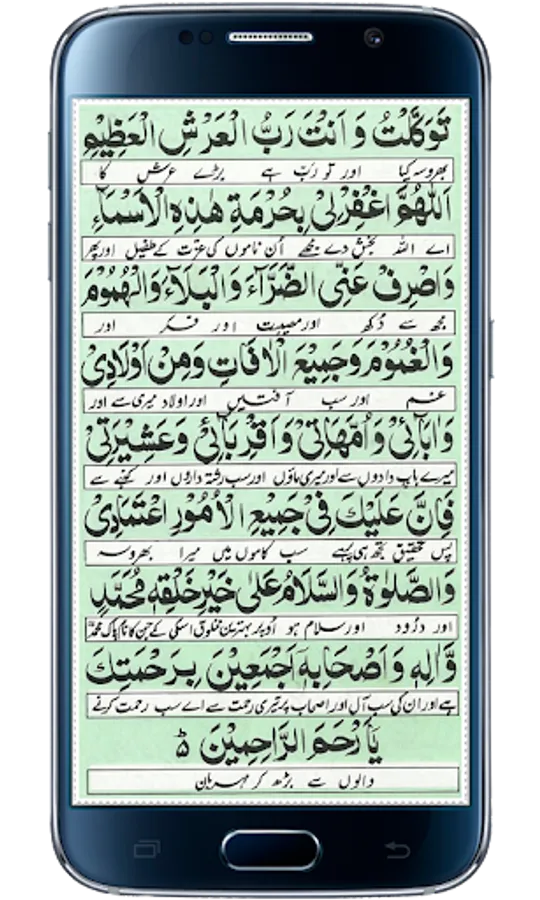 تَوَكَّلْتُ وَ اَنْتَ رَبُّ الْعَرْشِ الْعَظِيْمِ
بھروسہ کیا اور تو ربّ ہے بڑے عرش کا
اَللّٰهُمَّ اغْفِرْلِىْ بِحُرْمَةِ هٰذِهِ الْاَسْمَآءِ
اے اللہ بخش دے مجھے اُن ناموں کی عزت کے طفیل اور پھر
وَاصْرِفْ عَنِّى الضَّرَّآءَ وَالْبَلَآءَ وَالْهُمُوْمَ
مجھ سے دُکھ اور مصیبت اور فکر اور
وَالْغُمُوْمَ وَجَمِيْعَ الْاٰفَاتِ وَمِنْ اَوْلَادِىْ
غم اور سب آفتیں اور اولاد میری سے اور
وَاٰبَآئِىْ وَاُمَّهَاتِىْ وَاَقْرِبَآئِىْ وَعَشِيْرَتِىْ
میرے باپ دادوں سے اور میری ماؤں اور سب رشتہ داروں اور کنبے سے
فَاِنَّ عَلَيْكَ فِىْ جَمِيْعِ الْاُمُوْرِ اعْتِمَادِىْ
پس تحقیق تجھ ہی پہ ہے سب کاموں میں میرا بھروسہ
وَالصَّلٰوةُ وَالسَّلَامُ عَلٰى خَيْرِ خَلْقِهٖ مُحَمَّدٍ
اور درُود اور سلام ہو اُوپر بہترین مخلوق اسکی کے جن کا نام پاک محمدؐ
وَّاٰلِهٖ وَاَصْحَابِهٖٓ اَجْمَعِيْنَ بِرَحْمَتِكَ
ہے اور ان کی سب آل اور اصحاب پر تیری رحمت سے اے سب رحمت کرنے
يَآ اَرْحَمَ الرَّاحِمِيْنَ ۵
والوں سے بڑھ کر مہربان